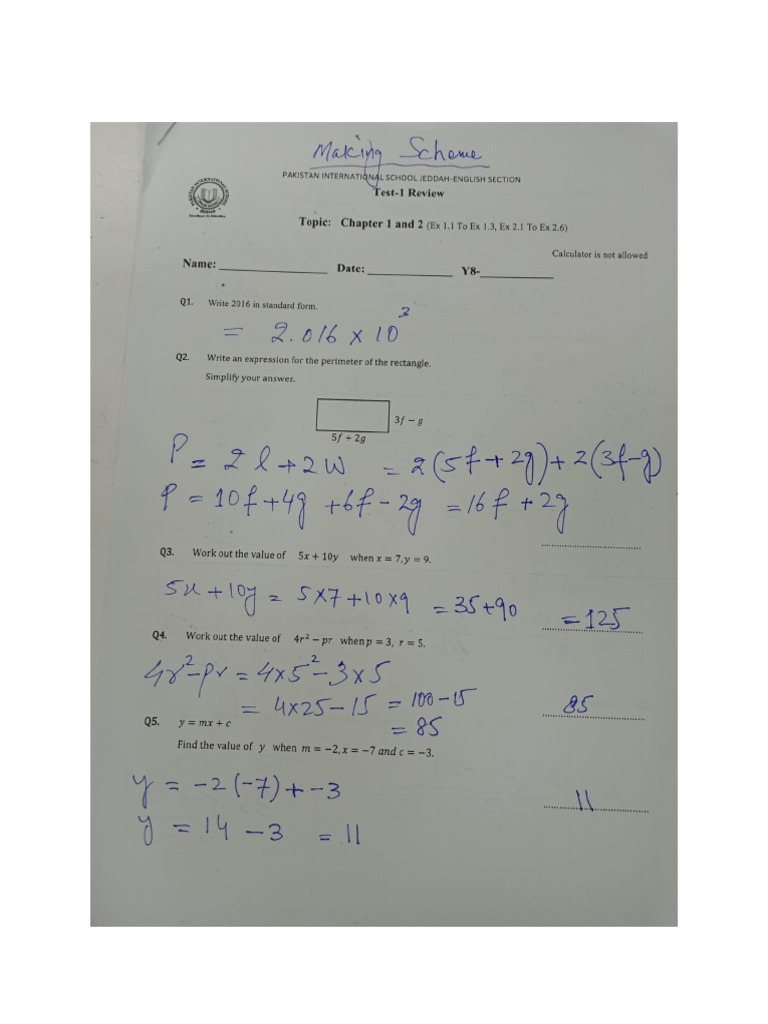 Making Scheme
PAKISTAN INTERNATIONAL SCHOOL JEDDAH-ENGLISH SECTION
Test-1 Review
Topic: Chapter 1 and 2 (Ex 1.1 To Ex 1.3, Ex 2.1 To Ex 2.6)
Calculator is not allowed
Name: Date: Y8-
Q1. Write 2016 in standard form.
= 2.016 × 10³
Q2. Write an expression for the perimeter of the rectangle.
Simplify your answer.
3f − g
5f + 2g
P = 2l + 2W = 2(5f + 2g) + 2(3f − g)
P = 10f + 4g + 6f − 2g = 16f + 2g
Q3. Work out the value of 5x + 10y when x = 7, y = 9.
5x + 10y = 5×7 + 10×9 = 35 + 90 = 125
Q4. Work out the value of 4r² − pr when p = 3, r = 5.
4r² − pr = 4×5² − 3×5
= 4×25 − 15 = 100 − 15 85
= 85
Q5. y = mx + c
Find the value of y when m = −2, x = −7 and c = −3.
y = −2(−7) + −3
11
y = 14 − 3 = 11